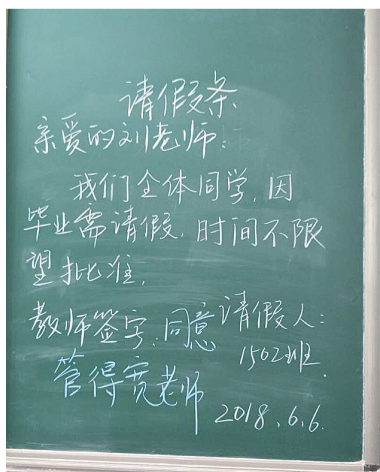 请假条
亲爱的刘老师:
我们全体同学,因
毕业需请假,时间不限
望批准,
教师签字:同意
管得宽老师
请假人:
1502班.
2018.6.6.